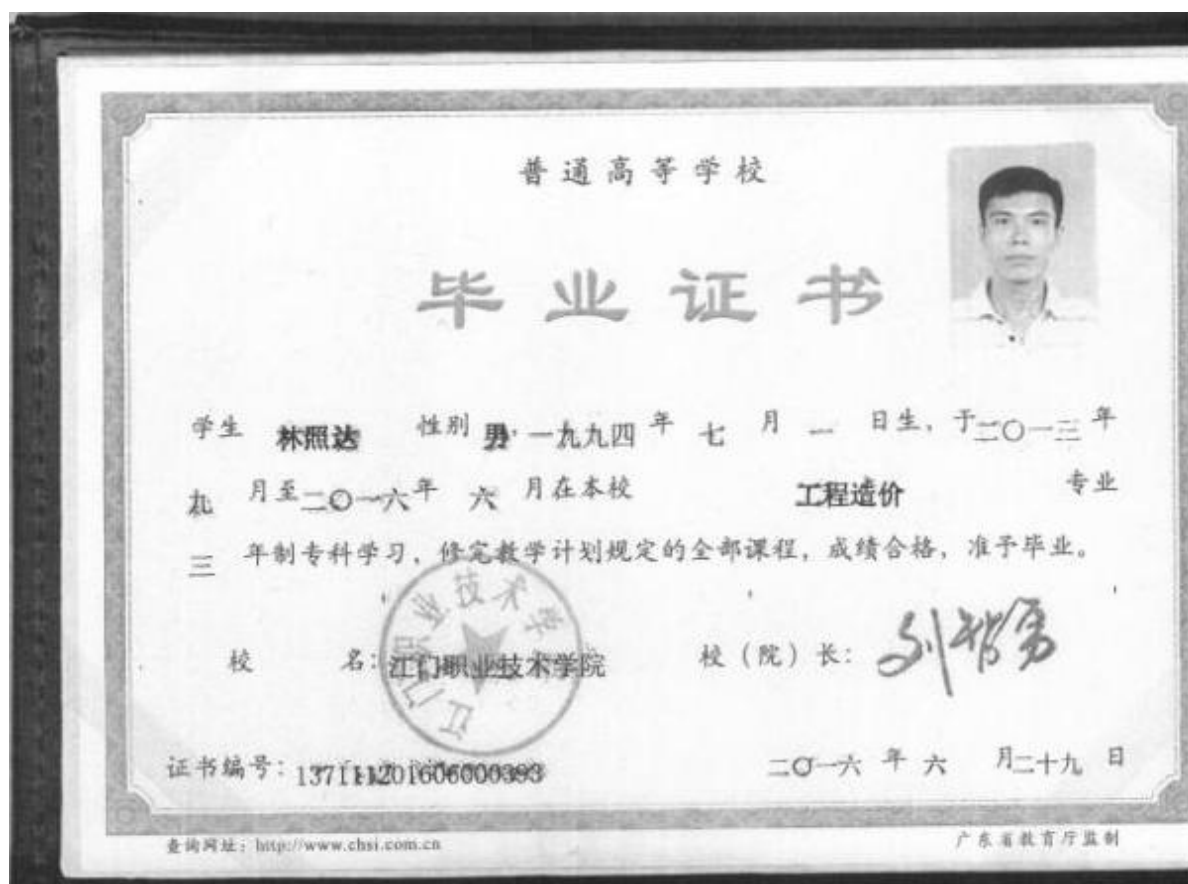 普通高等学校
毕业证书
学生 林照达 性别 男, 一九九四 年 七 月 一 日生, 于二〇一三年
九 月至二〇一六年 六 月在本校 工程造价 专业
三 年制专科学习, 修完教学计划规定的全部课程, 成绩合格, 准予毕业。
江门职业技术学院
校 名: 江门职业技术学院 校（院）长: 刘智勇
证书编号: 137111201606000393 二〇一六 年 六 月二十九 日
查询网址: http://www.chsi.com.cn 广东省教育厅监制